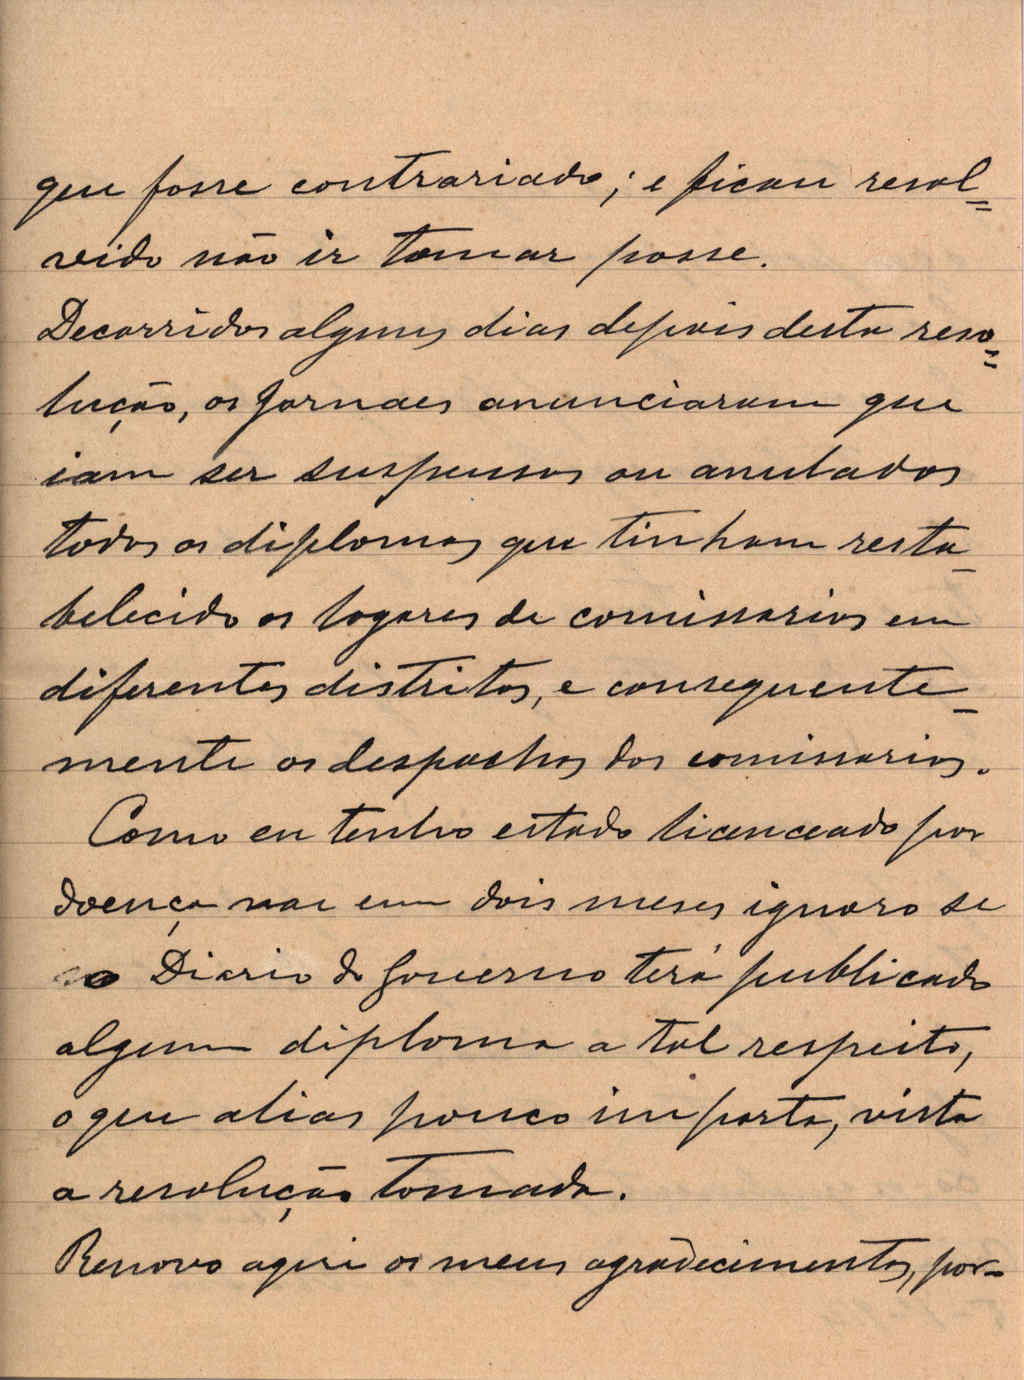 que fosse contrariado; e ficou resol=
vido não ir tomar posse.
Decorridos alguns dias depois desta reso=
lução, os jornaes anunciaram que
iam ser suspensos ou anulados
todos os diplomas que tinham resta-
belecido os logares de comissarios em
diferentes distritos, e consequente-
mente os despachos dos comissarios.
Como eu tenho estado licenceado por
doença vae em dois meses ignoro se
o Diario do Governo terá publicado
algum diploma a tal respeito,
o que alias pouco importa, visto
a resolução tomada.
Renovo aqui os meus agradecimentos, por-